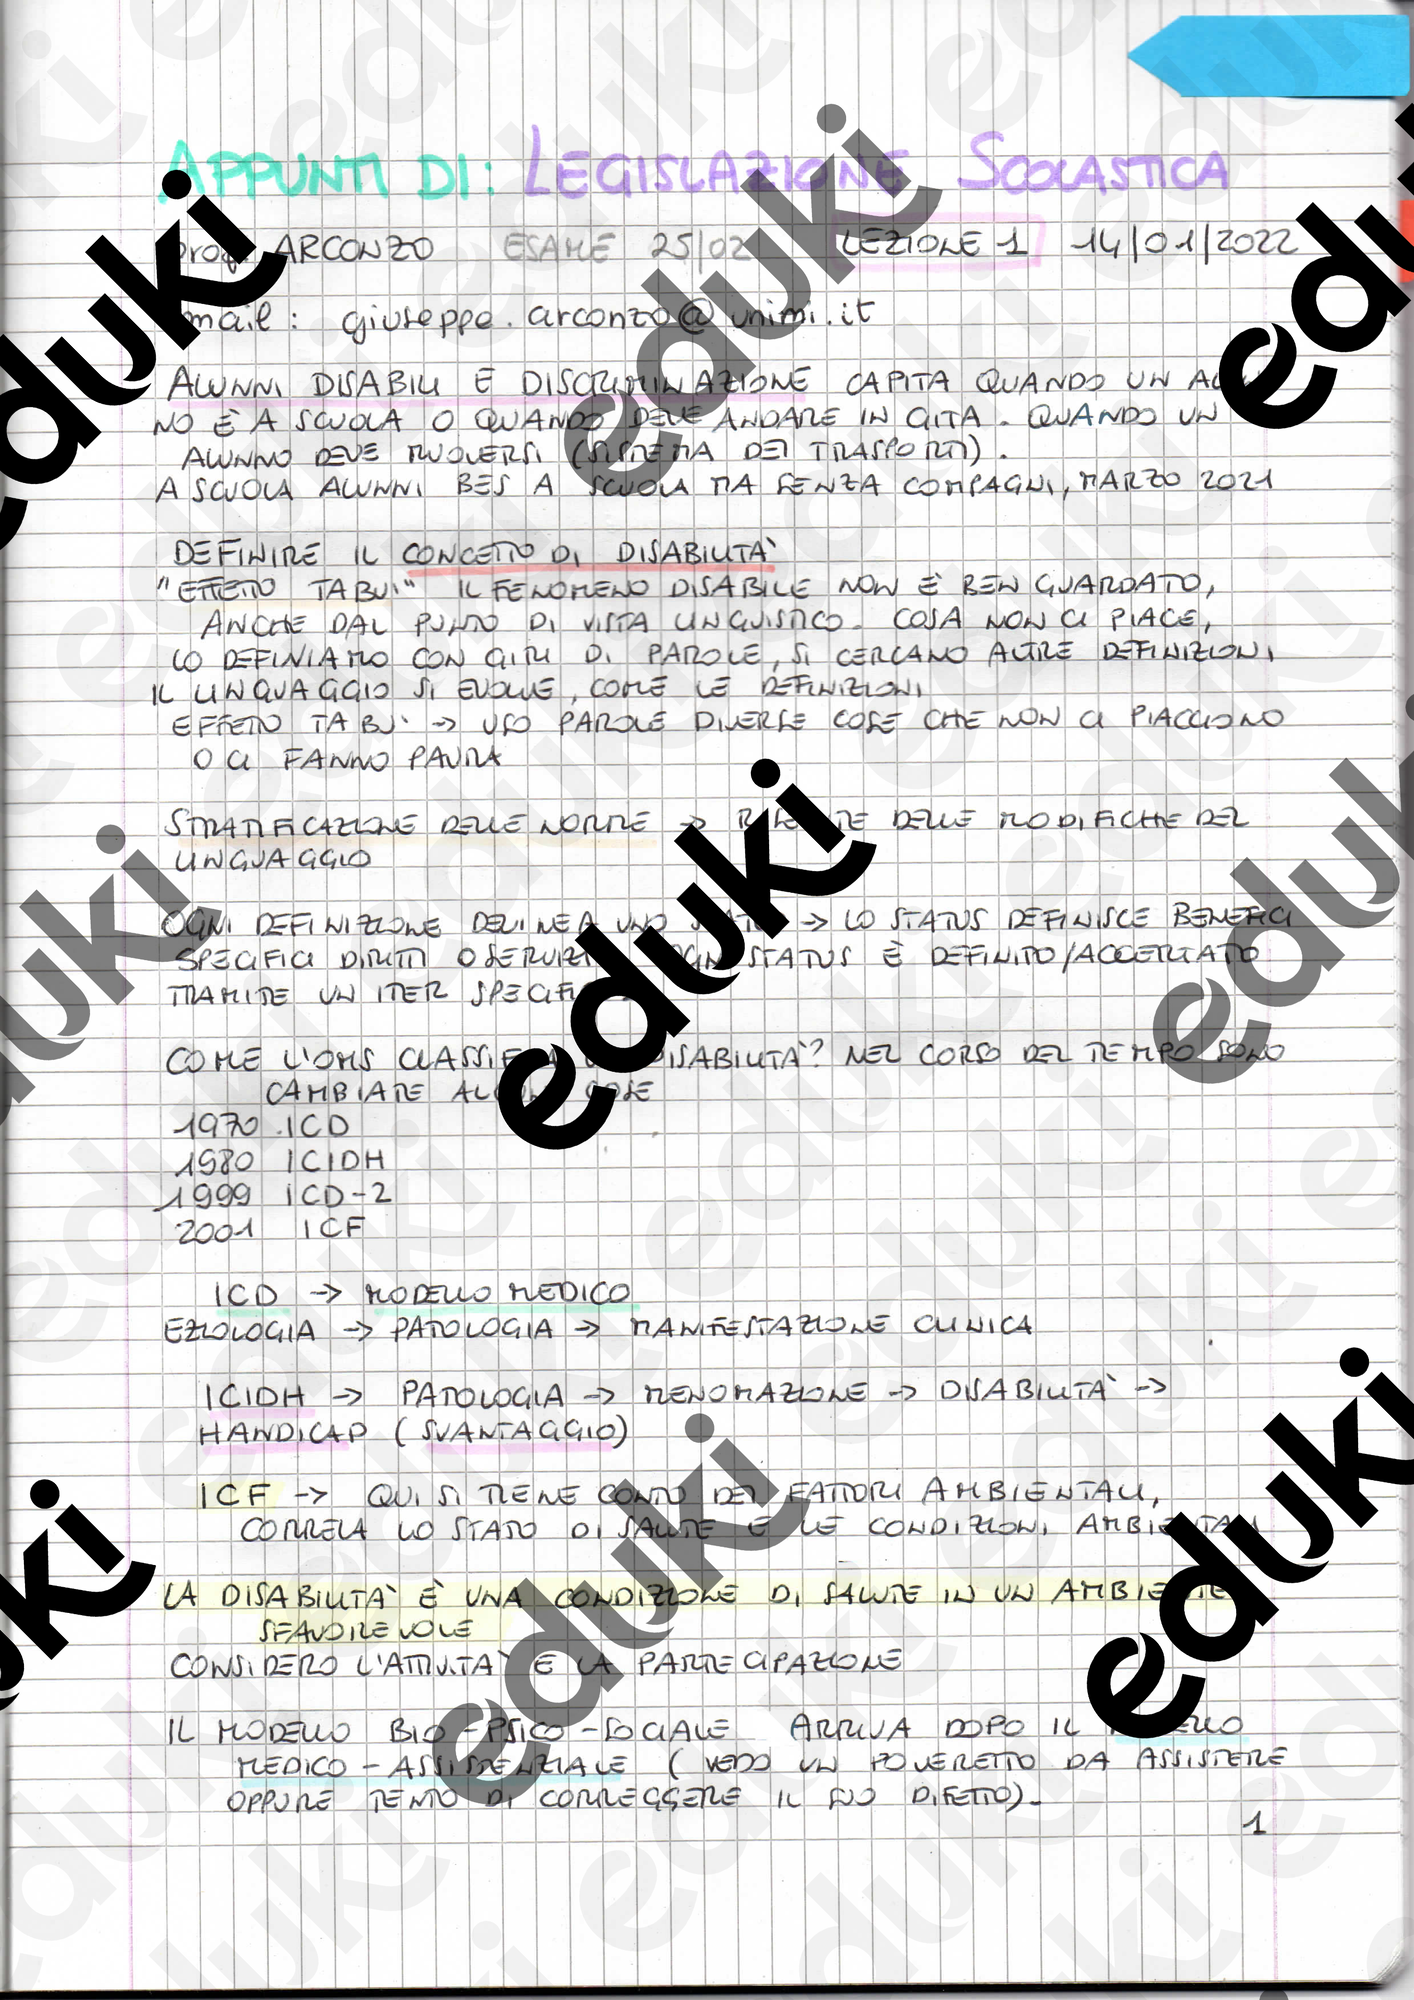 APPUNTI DI: LEGISLAZIONE SCOLASTICA
prof ARCONZO ESAME 25/02 LEZIONE 1 14/01/2022
mail: giuseppe.arconzo@unimi.it
ALUNNI DISABILI E DISCRIMINAZIONE CAPITA QUANDO UN ALUN
NO È A SCUOLA O QUANDO DEVE ANDARE IN GITA. QUANDO UN
ALUNNO DEVE MUOVERSI (SISTEMA DEI TRASPORTI).
A SCUOLA ALUNNI BES A SCUOLA MA SENZA COMPAGNI, MARZO 2021
DEFINIRE IL CONCETTO DI DISABILITÀ
"EFFETTO TABU'" IL FENOMENO DISABILE NON È BEN GUARDATO,
ANCHE DAL PUNTO DI VISTA LINGUISTICO. COSA NON CI PIACE,
LO DEFINIAMO CON GIRI DI PAROLE, SI CERCANO ALTRE DEFINIZIONI
IL LINGUAGGIO SI EVOLVE, COME LE DEFINIZIONI
EFFETTO TABU' -> USO PAROLE DIVERSE COSE CHE NON CI PIACCIONO
O CI FANNO PAURA
STRATIFICAZIONE DELLE NORME -> RISENTE DELLE MODIFICHE DEL
LINGUAGGIO
OGNI DEFINIZIONE DELINEA UNO STATUS -> LO STATUS DEFINISCE BENEFICI
SPECIFICI DIRITTI O SERVIZI OGNI STATUS È DEFINITO/ACCERTATO
TRAMITE UN ITER SPECIFICO
COME L'OMS CLASSIFICA LA DISABILITÀ? NEL CORSO DEL TEMPO SONO
CAMBIATE ALCUNE COSE
1970 ICD
1980 ICIDH
1999 ICD-2
2001 ICF
ICD -> MODELLO MEDICO
EZIOLOGIA -> PATOLOGIA -> MANIFESTAZIONE CLINICA
ICIDH -> PATOLOGIA -> MENOMAZIONE -> DISABILITÀ ->
HANDICAP (SVANTAGGIO)
ICF -> QUI SI TIENE CONTO DEI FATTORI AMBIENTALI,
CORRELA LO STATO DI SALUTE E LE CONDIZIONI AMBIENTALI
LA DISABILITÀ È UNA CONDIZIONE DI SALUTE IN UN AMBIENTE
SFAVOREVOLE
CONSIDERO L'ATTIVITÀ E LA PARTECIPAZIONE
IL MODELLO BIO-PSICO-SOCIALE ARRIVA DOPO IL MODELLO
MEDICO-ASSISTENZIALE (VEDO UN POVERETTO DA ASSISTERE
OPPURE TENTO DI CORREGGERE IL SUO DIFETTO).
1
eduki
eduki
eduki
eduki
eduki
eduki
eduki
eduki
eduki